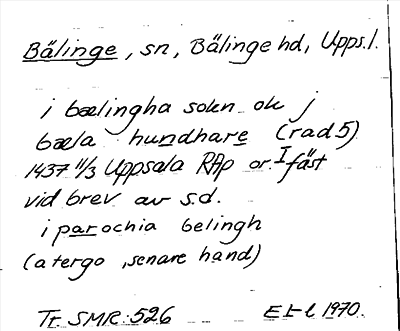 Bälinge, sn, Bälinge hd, Upps.l.
i bælingha sokn ok j
bæla hundhare (rad 5)
1437 11/3 Uppsala RAp or. I fäst
vid brev av s.d.
i parochia belingh
(a tergo, senare hand)
Tr. SMR: 526 EL-l 1970.